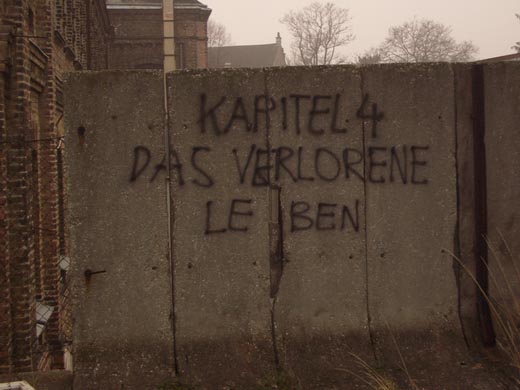 KAPITEL 4
DAS VERLORENE
LEBEN